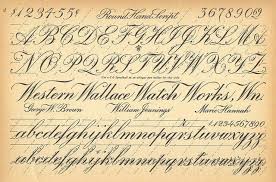 $ 1 2 3 4 5 5 Round Hand Script 3 6 7 8 9 0 9
A B C D E F G H I J K L M N
O P Q R S T U V W X Y Z
Western Wallace Watch Works, Wn.
George W. Brown William Jennings Marie Hannah
abcdefghijklmnopqrstuvwxyz
1 2 3 4 5 6 7 8 9 0
abcdefghijklmnopqrstuvwxyz